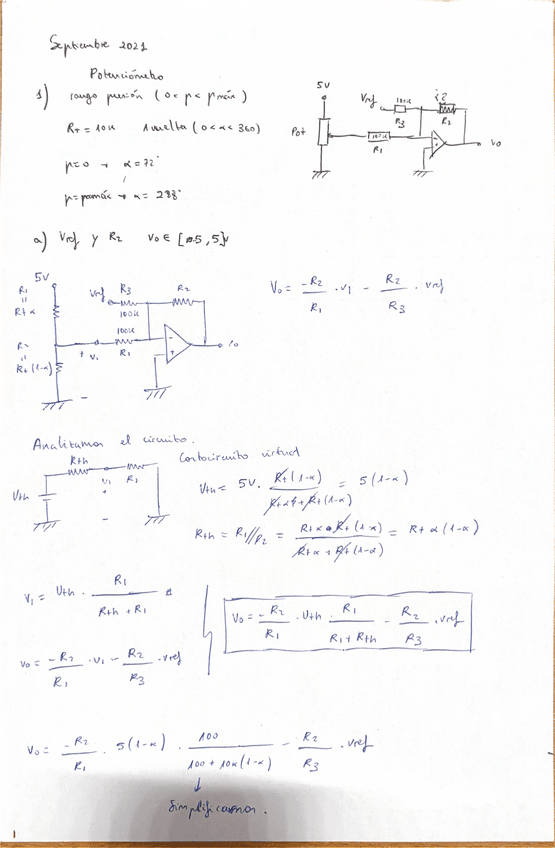 Septiembre 2021
Potenciómetro
1) rango presión (0 < p < pmáx)
Rt = 10K 1 vuelta (0 < α < 360)
p=0 → α = 72°
p=pmáx → α = 288°
5V
Vref 100K R3 R2
Pot 100K R1 Vo
a) Vref y R2 Vo ∈ [0.5, 5]V
5V
R1 = Rt α
Vref R3 100K R2
100K R1
+ V1 - Vo
Rt (1-α)
Vo = -R2/R1 · V1 - R2/R3 · Vref
Analizamos el circuito.
Cortocircuito virtual
Rth
Vth V1 + R1
Vth = 5V · Rt(1-α) / Rtα + Rt(1-α) = 5(1-α)
Rth = R1//R2 = Rtα · Rt(1-α) / Rtα + Rt(1-α) = Rt α(1-α)
V1 = Vth · R1 / Rth + R1
Vo = -R2/R1 · Vth · R1 / R1 + Rth - R2/R3 · Vref
Vo = -R2/R1 · V1 - R2/R3 · Vref
Vo = -R2/R1 · 5(1-α) · 100 / 100 + 10α(1-α) - R2/R3 · Vref
↓
Simplificamos.